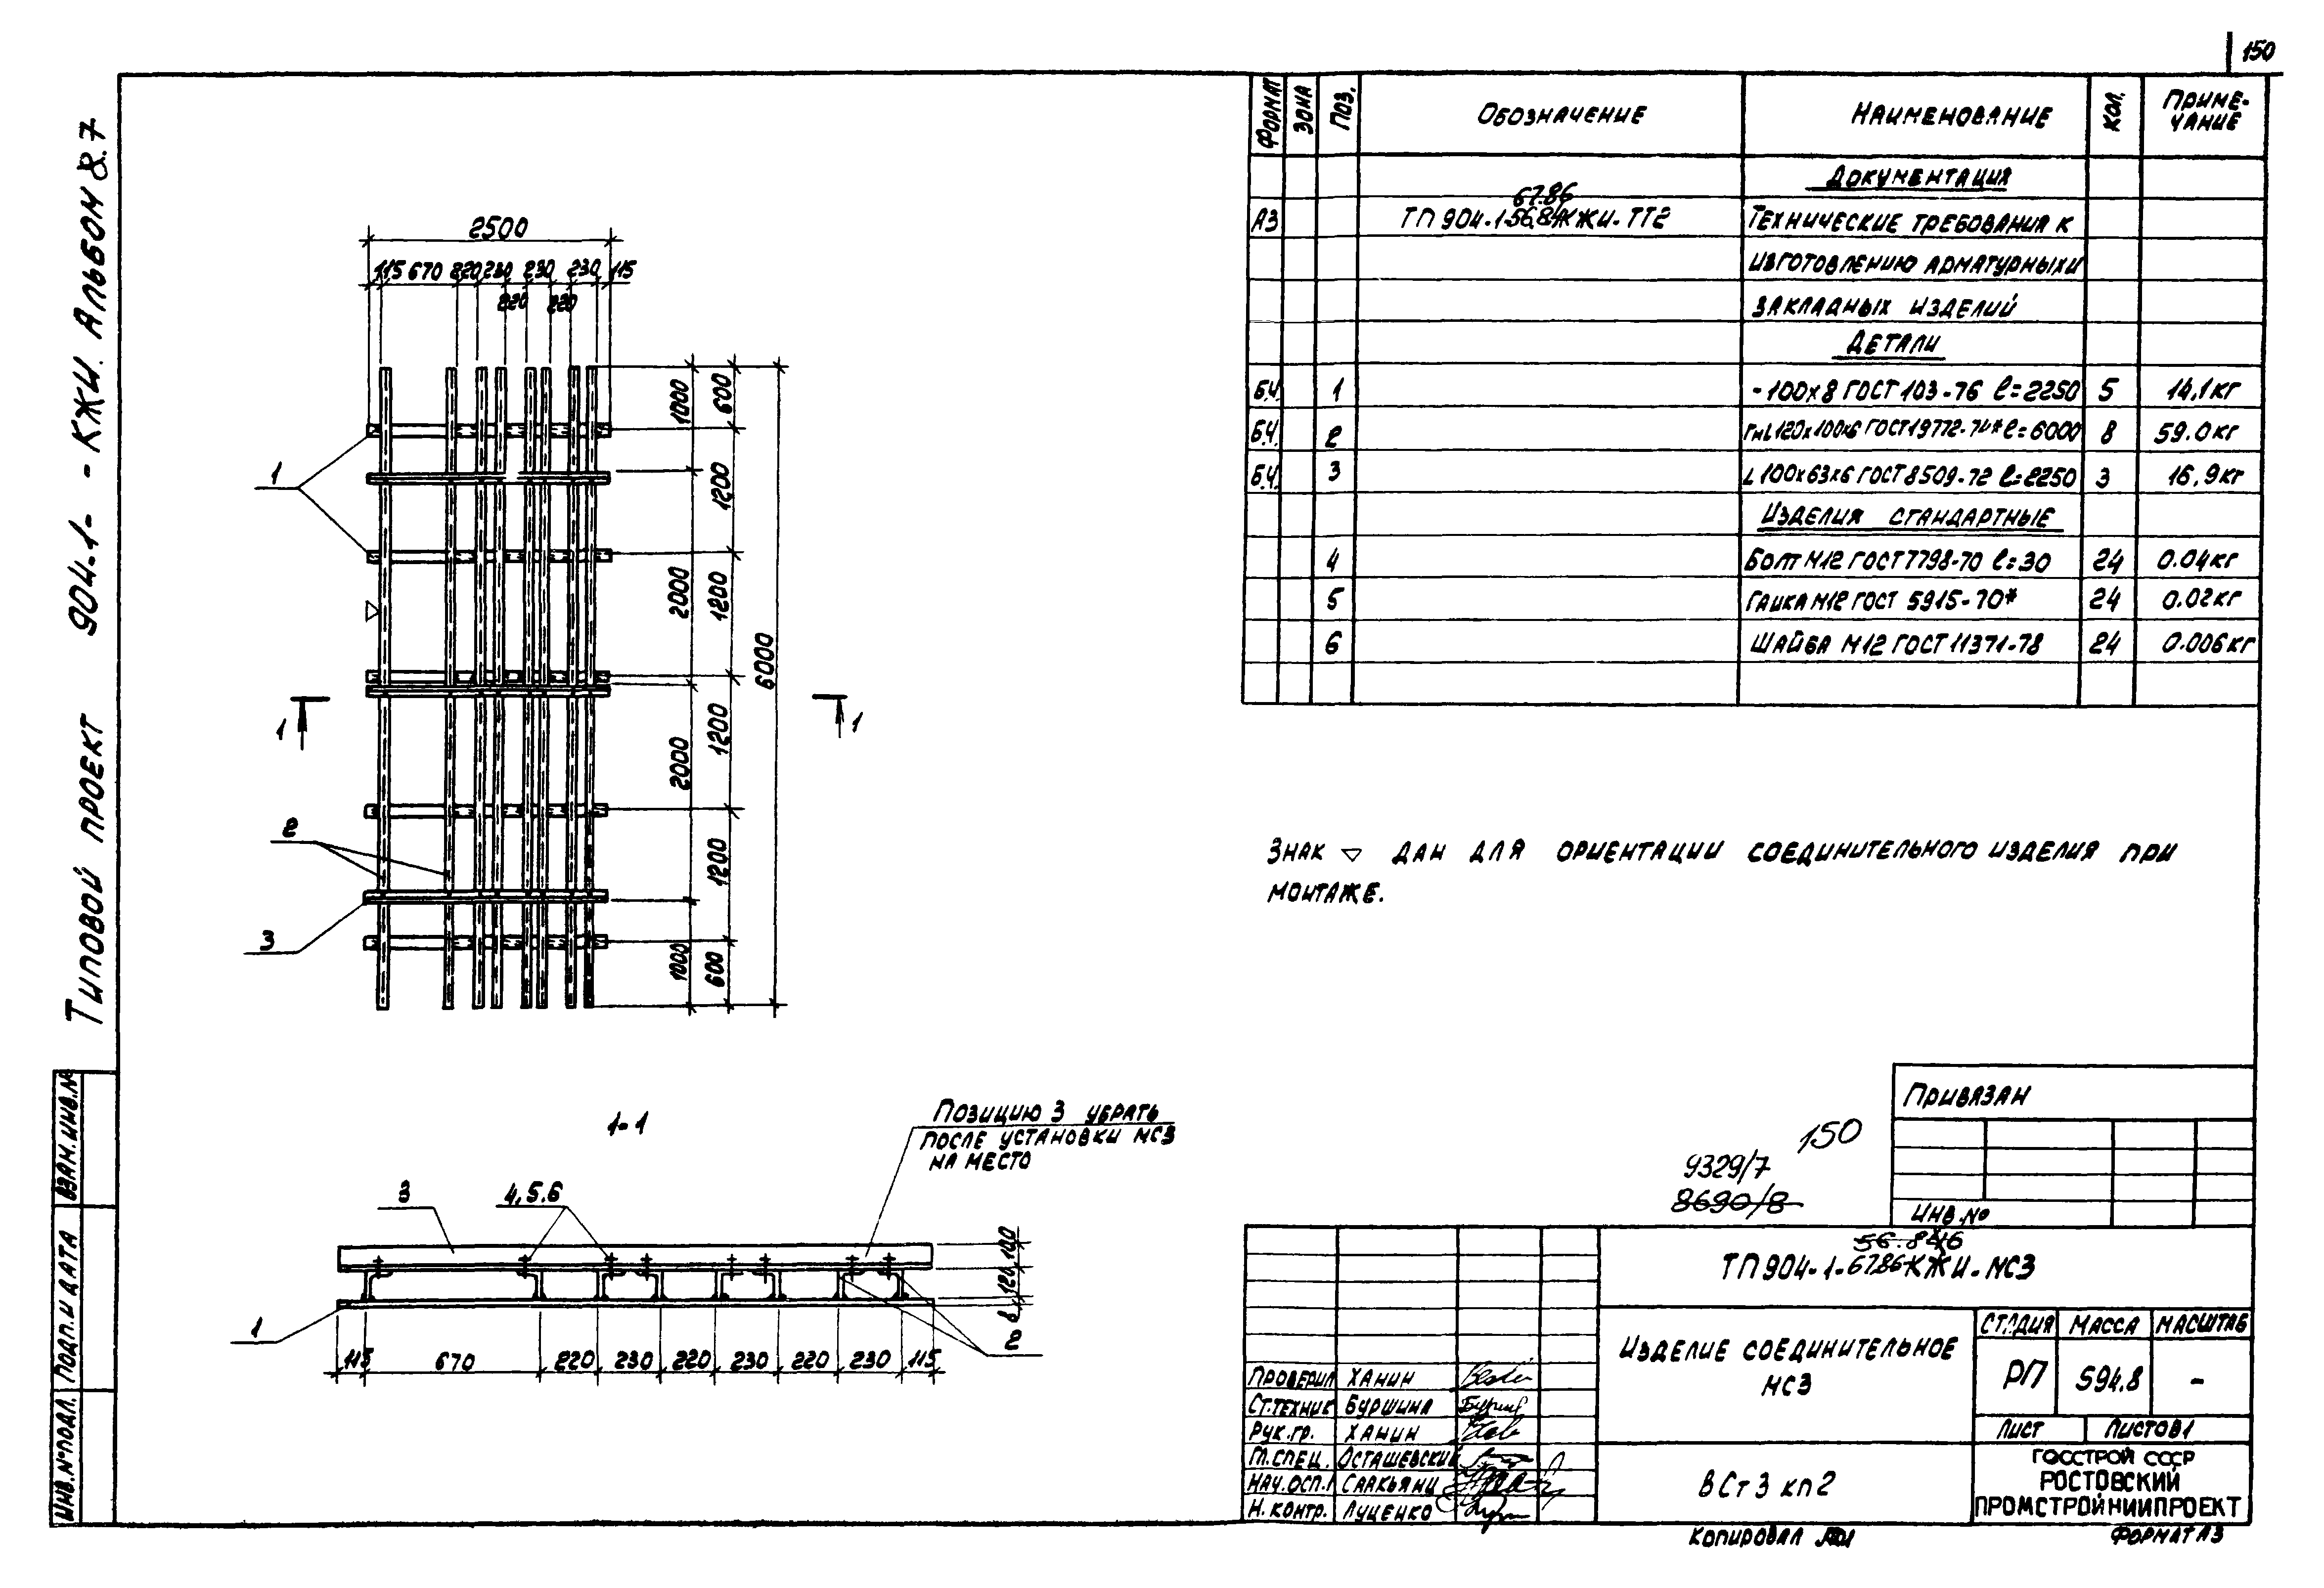 150
Типовой проект 904-1- - КЖИ. Альбом 8.7
Формат Зона Поз. Обозначение Наименование Кол. Приме-
чание
Документация
67.86
А3 ТП 904-1-56.84КЖИ-ТТ2 Технические требования к
изготовлению арматурных и
закладных изделий
Детали
Б.Ч. 1 -100х8 ГОСТ 103-76 ℓ=2250 5 14,1кг
Б.Ч. 2 Гн∟120х100х6 ГОСТ 19772-74* ℓ=6000 8 59.0кг
Б.Ч. 3 ∟100х63х6 ГОСТ 8509-72 ℓ=2250 3 16,9кг
Изделия стандартные
4 Болт М12 ГОСТ 7798-70 ℓ=30 24 0.04кг
5 Гайка М12 ГОСТ 5915-70* 24 0.02кг
6 Шайба М12 ГОСТ 11371-78 24 0.006кг
2500
115 670 220 230 230 230 115
220 220
1000 600
1200
2000 1200
6000
1200
2000
1200
1000 600
1
1 1
2
3
Знак ▽ дан для ориентации соединительного изделия при
монтаже.
1-1
Позицию 3 убрать
после установки МС3
на место
3 4,5.6
100
120
8
1 2
115 670 220 230 220 230 220 230 115
150
9329/7
8690/8
Привязан
Инв.№
56.84
ТП 904-1-67.86КЖИ-МС3
Изделие соединительное
МС3
Стадия Масса Масштаб
РП 594.8 -
Лист Листов 1
Проверил Ханин
Ст.техник Буршина
Рук.гр. Ханин
Гл.спец. Осташевский
Нач.осп.1 Саакьянц
Н.контр. Луценко
ВСт3 кп2
Госстрой СССР
Ростовский
Промстройниипроект
Копировал
Формат А3
Инв.№подл. Подп.и дата Взам.инв.№